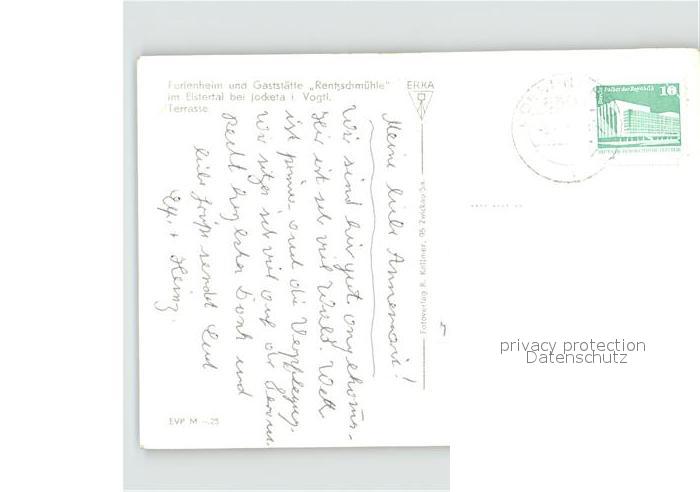 Ferienheim und Gaststätte „Rentzschmühle"
im Elstertal bei Jocketa i. Vogtl.
Terrasse
ERKA
Meine liebe Annemarie!
Wir sind hier gut angekom-
Hier ist sehr viel Wald. Wett
ist prima, und die Verpflegung.
Wir sitzen sehr viel auf der Terrasse.
Recht herzlichen Dank und
liebe Grüße sendet Euch
Heinz.
EVP M -.25
Fotoverlag R. Kallmer, 95 Zwickau Sa.
Palast der Republik
10
privacy protection
Datenschutz